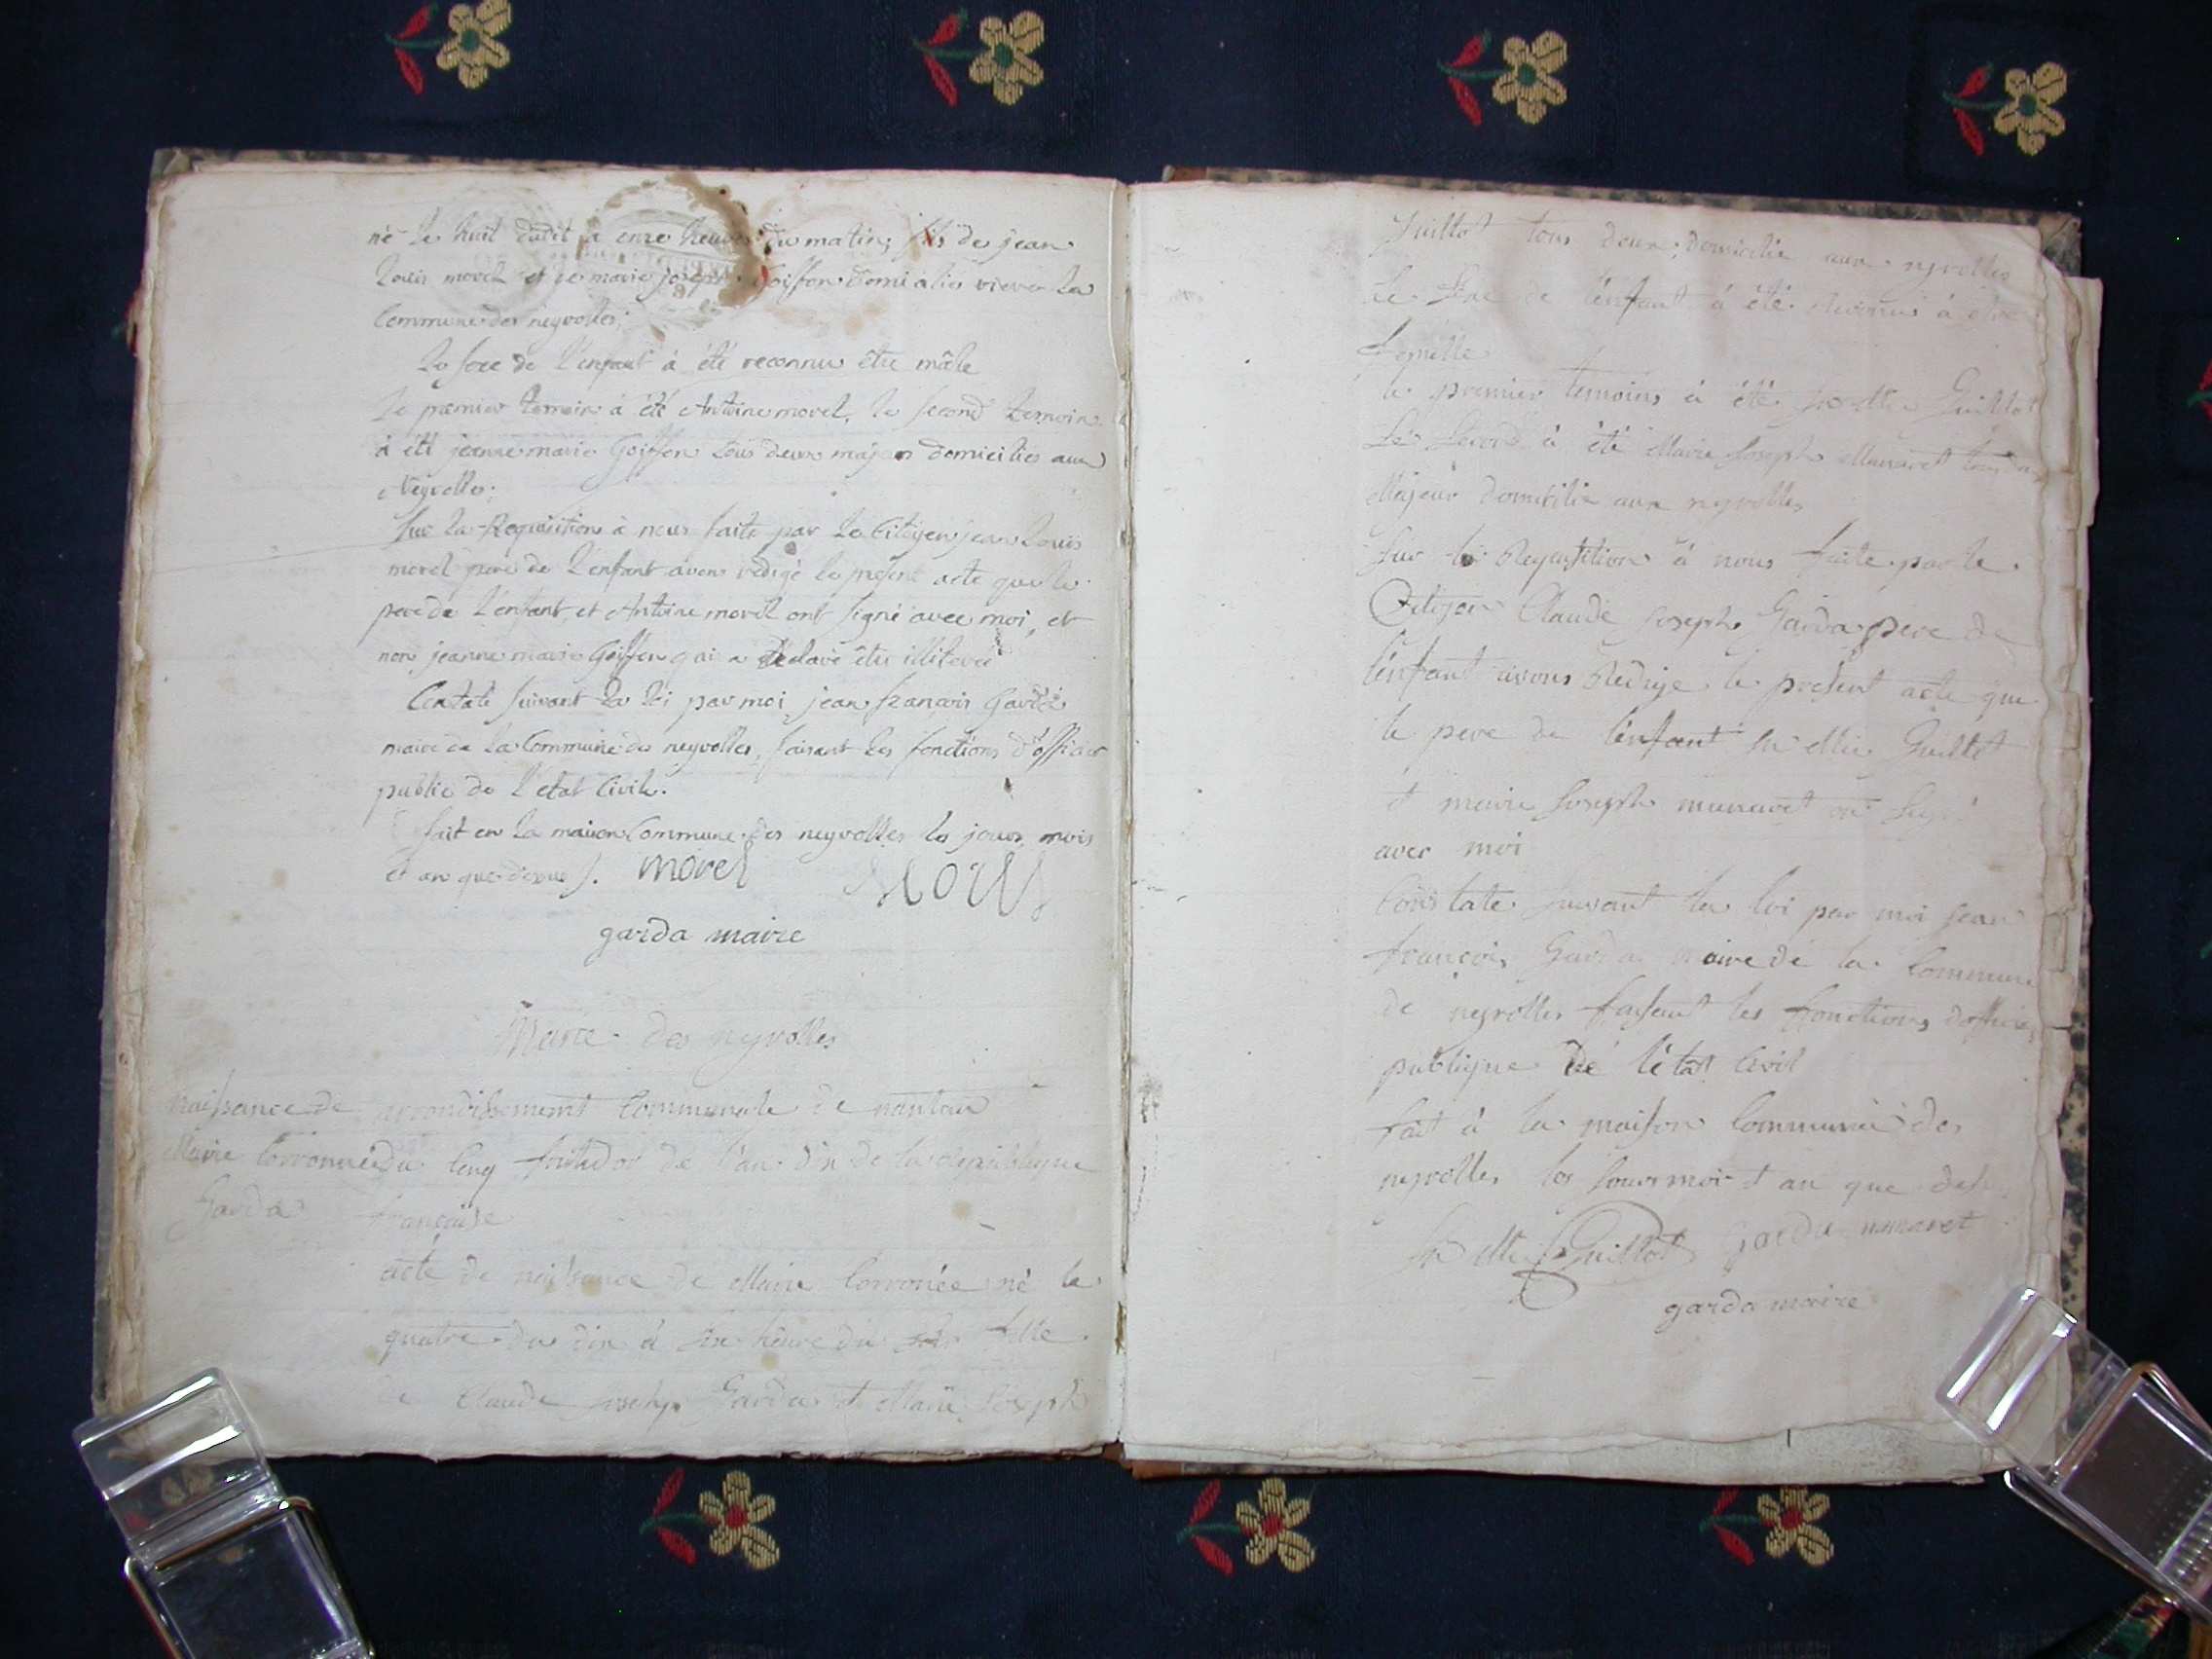 né le huit dudit à onze heures du matin, fils de jean
Louis morel et de marie joseph Goiffon domiciliés
Commune des neyrolles;
Le sexe de l'enfant à été reconnu être mâle
Le premier temoin à été Antoine morel, le second temoin
à été jeanne marie Goiffon tous deux majeurs domiciliés aux
Neyrolles;
Sur la Requisition à nous faite par le Citoyen jean Louis
morel pere de l'enfant avons redigé le présent acte que le
pere de l'enfant, et Antoine morel ont signé avec moi, et
non jeanne marie Goiffon qui a déclaré être illiterée
Constaté suivant la loi par moi jean françois Garda
maire de la Commune des neyrolles, faisant les fonctions d'officier
public de l'etat Civil.
fait en la maison Commune des neyrolles les jours, mois
et an que dessus. morel
garda maire
Mairie des neyrolles
naissance de
Marie Corronnée
Garda
arrondissement Communale de nantua
du cinq fructidor de l'an dix de la république
française
acte de naissance de Marie Corronée né le
quatre du dix à six heure du soir fille
de Claude Joseph Garda et Marie Joseph
Guillot tous deux domicilié aux neyrolles
Le sexe de l'enfant à été reconnu à être
femelle
le premier temoins à été Guillot
Le second à été Marie Joseph Munaret tous deux
Majeur domicilié aux neyrolles
Sur la Requisition à nous faite par le
Citoyen Claude Joseph Garda pere de
l'enfant avons Redigé le présent acte que
le pere de l'enfant Guillot
et marie Joseph munaret on signé
avec moi
Constaté suivant la loi par moi Jean
françois Garda maire de la Commune
de neyrolles faisant les fonctions d'officier
publique de l'état Civil
fait à la maison Commune des
neyrolles les jour mois et an que dessu
Guillot Garda munaret
garda maire